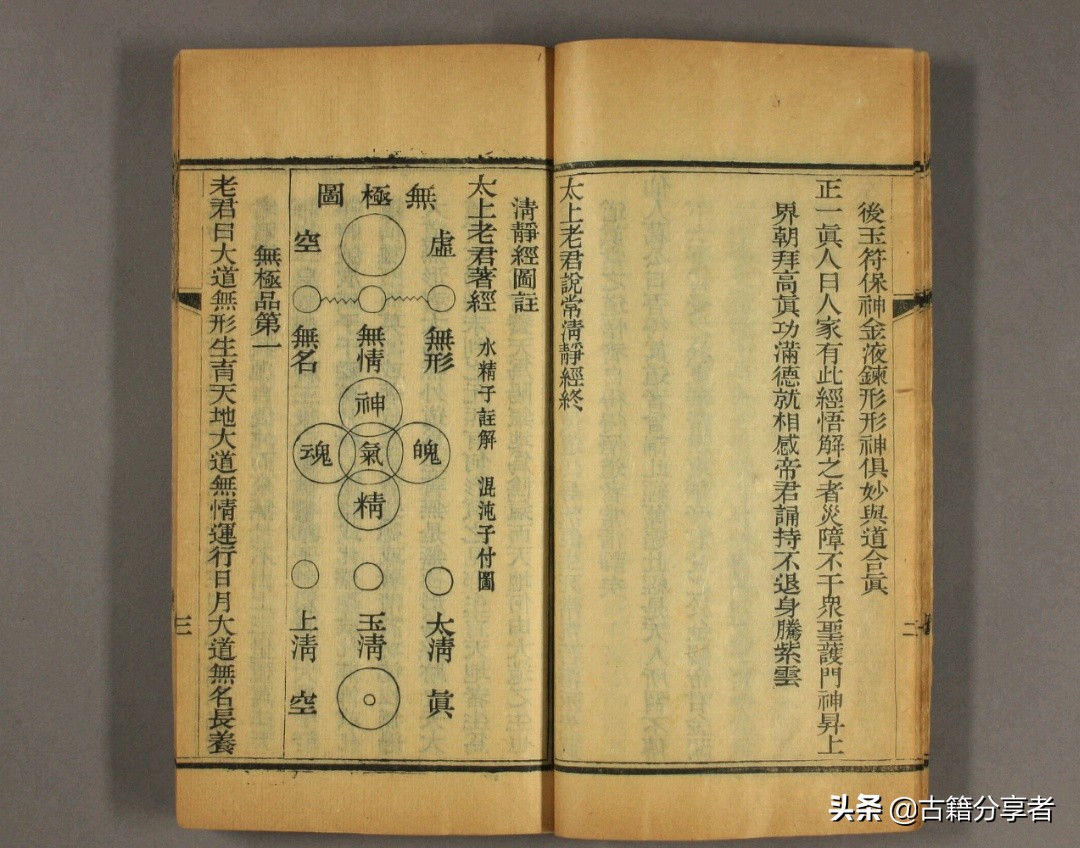 後玉符保神金液鍊形形神俱妙與道合眞
正一眞人曰人家有此經悟解之者災障不干眾聖護門神昇上
界朝拜高眞功滿德就相感帝君誦持不退身騰紫雲
太上老君說常清靜經終
二
清靜經圖註
太上老君著經 水精子註解 混沌子付圖
無極圖
虛
空
無形
無情
無名
神
魄
氣
魂
精
太清
玉清
上清
眞
空
無極品第一
老君曰大道無形生育天地大道無情運行日月大道無名長養
三
头条 @古籍分享者